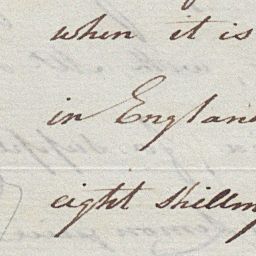 when it is
in England
eight shilling